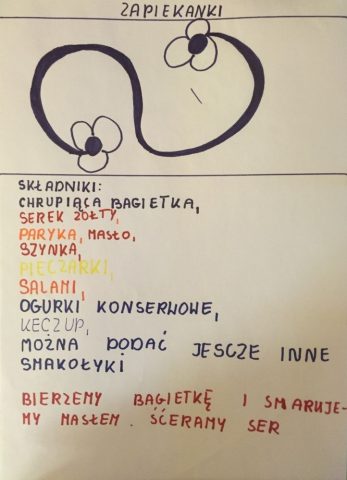 ZAPIEKANKI
SKŁADNIKI:
CHRUPIĄCA BAGIETKA,
SEREK ŻÓŁTY,
PARYKA, MASŁO,
SZYNKA,
PIECZARKI,
SALAMI,
OGURKI KONSERWOWE,
KECZUP,
MOŻNA DODAĆ JESCZE INNE
SMAKOŁYKI
BIERZEMY BAGIETKĘ I SMARUJE-
MY MASŁEM. ŚĆERAMY SER